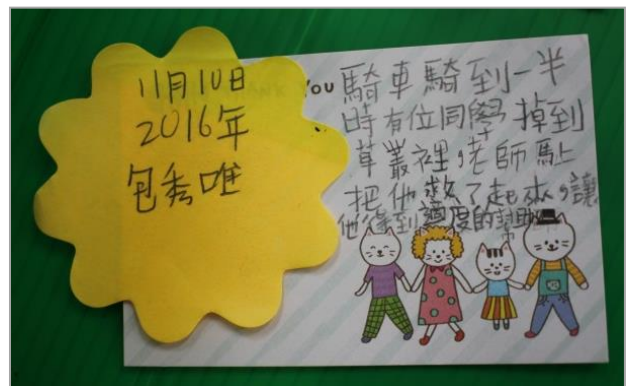 11月10日
2016年
包秀唯
YOU
騎車騎到一半
時有位同學掉到
草叢裡,老師馬上
把他救了起來,讓
他得到適度的幫